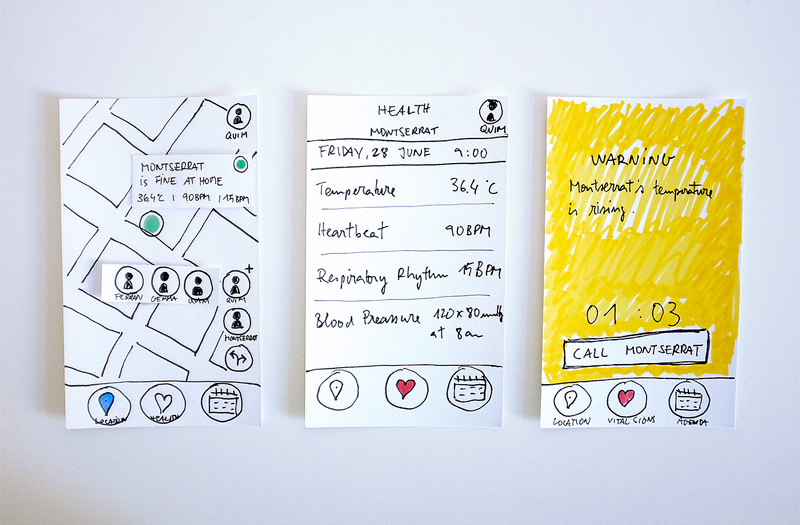 QUIM
MONTSERRAT
IS FINE AT HOME
36.4°C | 90BPM | 15BPM
FERRAN
GEMMA
QUIM
+
QUIM
MONTSERRAT
LOCATION
HEALTH
HEALTH
MONTSERRAT
QUIM
FRIDAY, 28 JUNE 9:00
Temperature 36.4 °C
Heartbeat 90BPM
Respiratory Rhythm 15BPM
Blood Pressure 120x80mmHg
at 8am
WARNING
Montserrat's temperature
is rising.
01:03
CALL MONTSERRAT
LOCATION
VITAL SIGNS
AGENDA